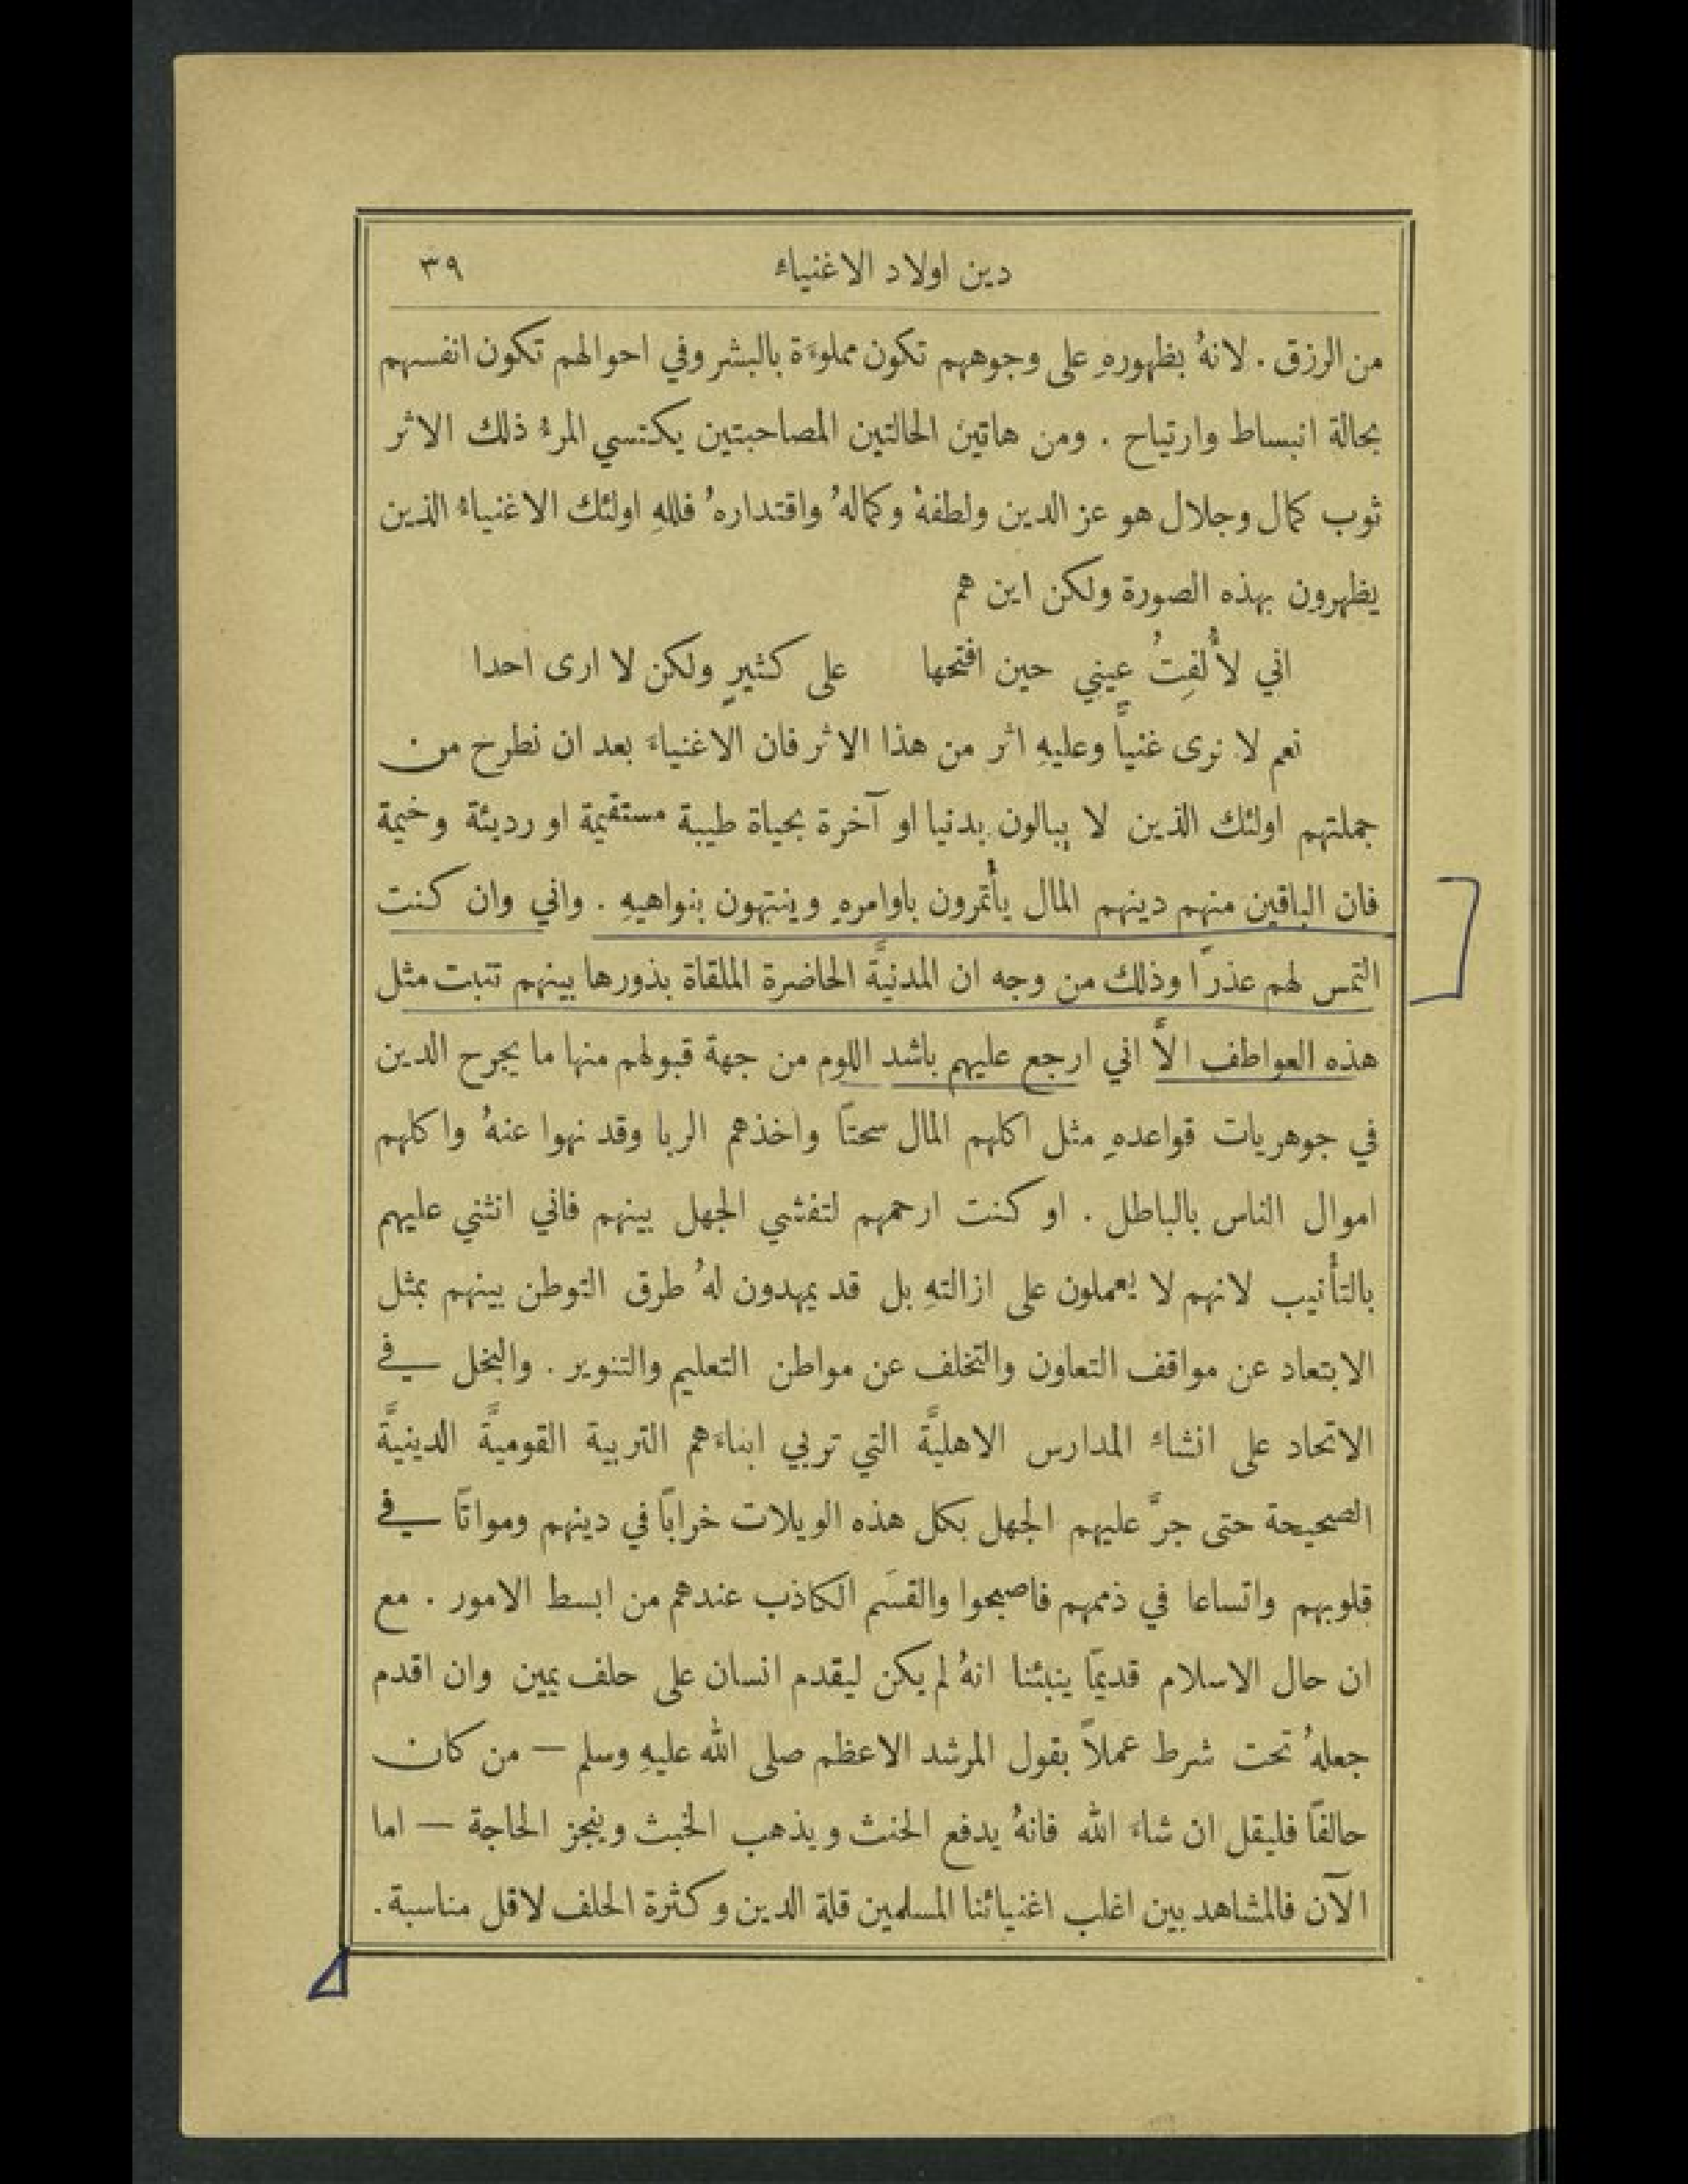 دين اولاد الاغنياء ٣٩
من الرزق . لانهُ بظهورهِ على وجوههم تكون مملوءَة بالبشر وفي احوالهم تكون انفسهم
بحالة انبساط وارتياح . ومن هاتين الحالتين المصاحبتين يكتسي المرءُ ذلك الاثر
ثوب كمال وجلال هو عز الدين ولطفهُ وكمالهُ واقتدارهُ فللهِ اولئك الاغنياءُ الذين
يظهرون بهذه الصورة ولكن اين هم
اني لأُلفِتُ عيني حين افتحها على كثيرٍ ولكن لا ارى احدا
نعم لا نرى غنياً وعليهِ اثر من هذا الاثر فان الاغنياءَ بعد ان نطرح من
جملتهم اولئك الذين لا يبالون بدنيا او آخرة بحياة طيبة مستقيمة او رديئة وخيمة
فان الباقين منهم دينهم المال يأتمرون باوامرهِ وينتهون بنواهيهِ . واني وان كنت
التمس لهم عذرًا وذلك من وجه ان المدنيَّة الحاضرة الملقاة بذورها بينهم تنبت مثل
هذه العواطف الاَّ اني ارجع عليهم باشد اللوم من جهة قبولهم منها ما يجرح الدين
في جوهريات قواعدهِ مثل اكلهم المال سحتًا واخذهم الربا وقد نهوا عنهُ واكلهم
اموال الناس بالباطل . او كنت ارحمهم لتفشي الجهل بينهم فاني انثني عليهم
بالتأنيب لانهم لا يعملون على ازالتهِ بل قد يمهدون لهُ طرق التوطن بينهم بمثل
الابتعاد عن مواقف التعاون والتخلف عن مواطن التعليم والتنوير . والبخل في
الاتحاد على انشاء المدارس الاهليَّة التي تربي ابناءَهم التربية القوميَّة الدينيَّة
الصحيحة حتى جرَّ عليهم الجهل بكل هذه الويلات خرابًا في دينهم ومواتًا في
قلوبهم واتساعا في ذممهم فاصبحوا والقسَم الكاذب عندهم من ابسط الامور . مع
ان حال الاسلام قديمًا ينبئنا انهُ لم يكن ليقدم انسان على حلف يمين وان اقدم
جعلهُ تحت شرط عملاً بقول المرشد الاعظم صلى الله عليهِ وسلم — من كان
حالفًا فليقل ان شاءَ الله فانهُ يدفع الحنث ويذهب الخبث وينجز الحاجة — اما
الآن فالمشاهد بين اغلب اغنيائنا المسلمين قلة الدين وكثرة الحلف لاقل مناسبة .